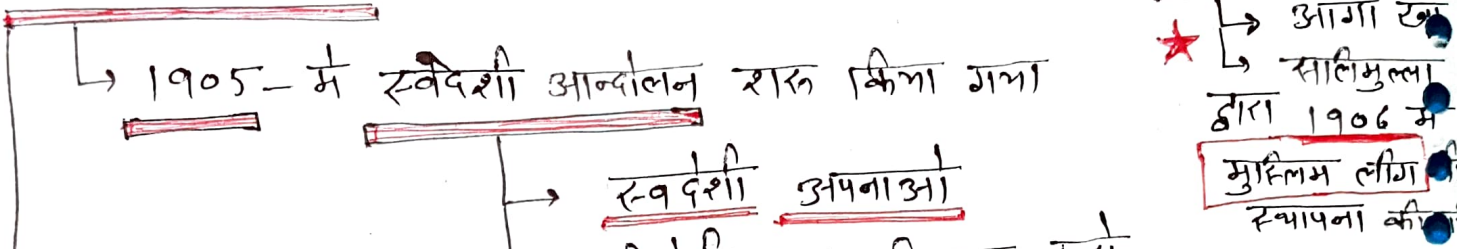 → 1905 - मे स्वेदशी आन्दोलन शरू किया गया
→ स्वदेशी अपनाओ
→ आगा खा
→ सालिमुल्ला
द्वारा 1906 मे
मुस्लिम लीग
स्थापना की